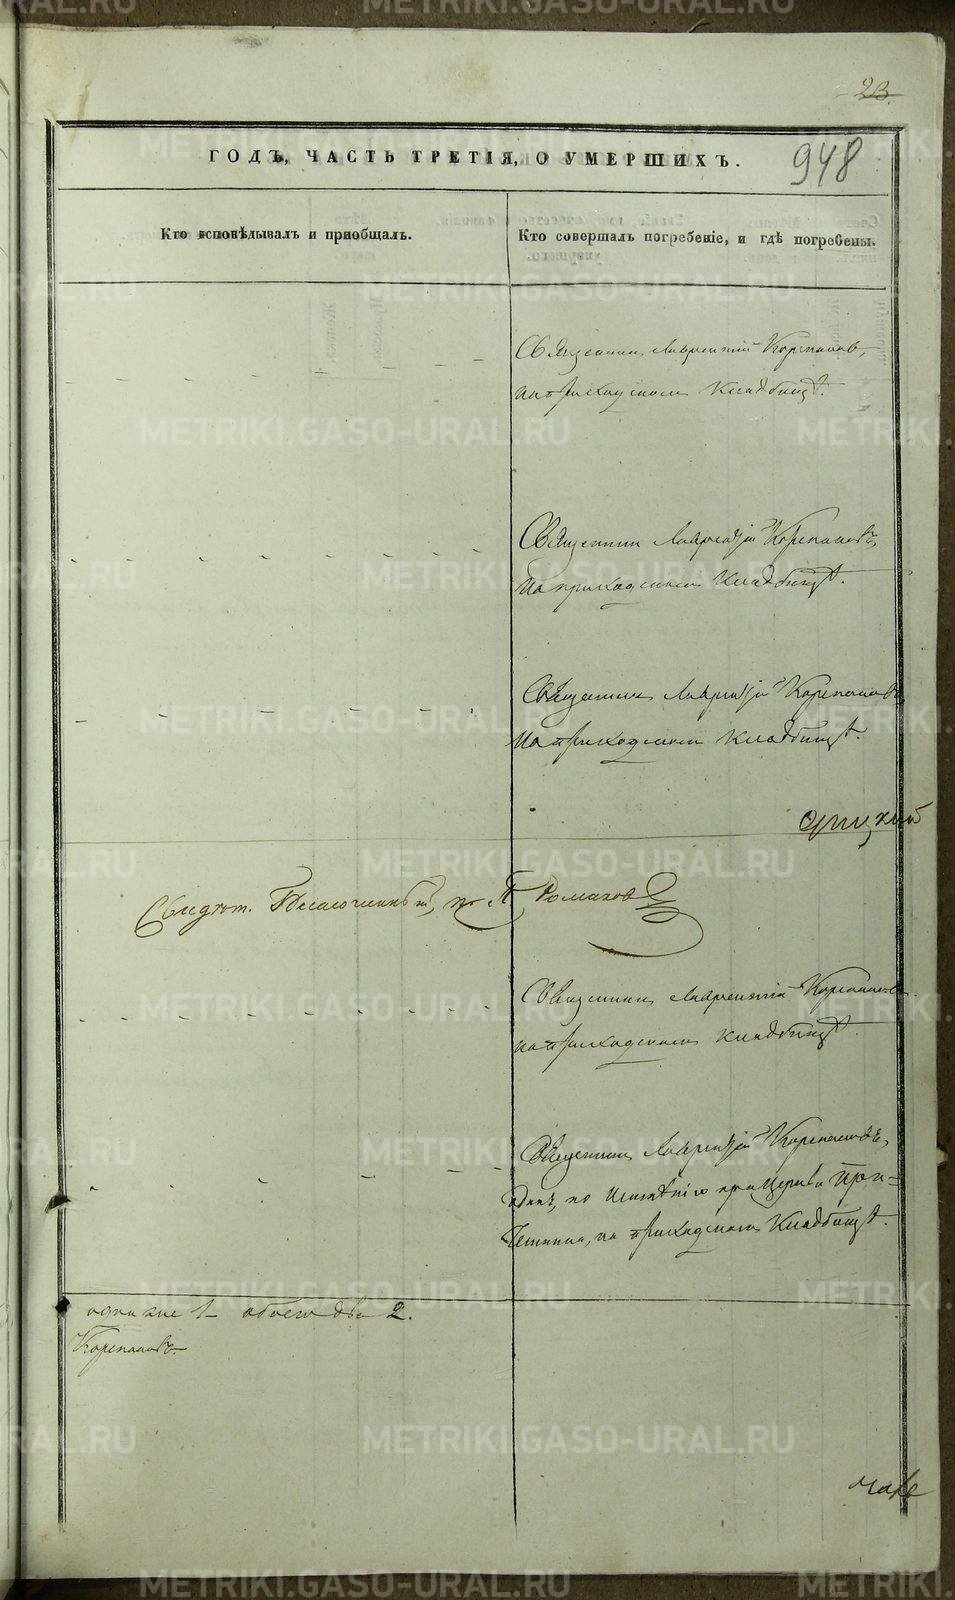 23.
948
ГОДЪ, ЧАСТЬ ТРЕТІЯ, О УМЕРШИХЪ.
Кто исповѣдывалъ и пріобщалъ.
Кто совершалъ погребеніе, и гдѣ погребены.
Священникъ Лаврентій Корепановъ,
на приходскомъ кладбищѣ.
Священникъ Лаврентій Корепановъ,
на приходскомъ кладбищѣ.
Священникъ Лаврентій Корепановъ
на приходскомъ кладбищѣ.
Романовъ
Священникъ Лаврентій Корепановъ
на приходскомъ кладбищѣ.
Священникъ Лаврентій Корепановъ,
одинъ, по неимѣнію при церкви При-
четника, на приходскомъ кладбищѣ.
1 обоего два 2.
Корепановъ
METRIKI.GASO-URAL.RU